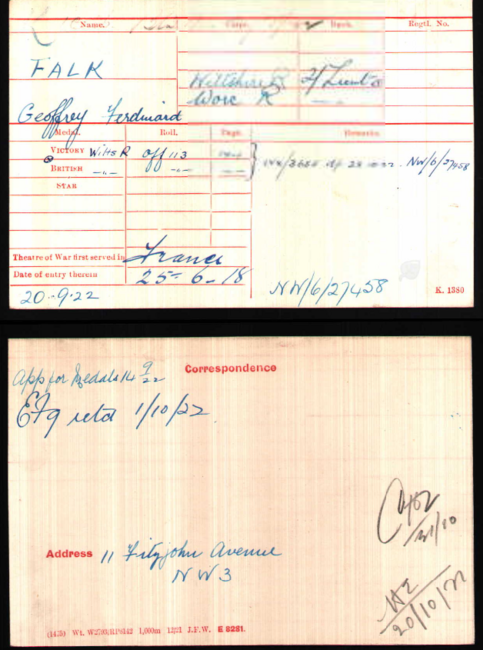 (Name.) Corps. Rank. Regtl. No.
FALK Wiltshire R 2/Lieut
Worc R —„—
Geoffrey Ferdinand
Medal. Roll. Page. Remarks
VICTORY Wilts R Off 113 NW/6/27458
BRITISH —„— —„—
STAR
Theatre of War first served in France
Date of entry therein 25-6-18
20.9.22 NW/6/27458 K. 1380
Correspondence
App for Medals 14 9/22
EF9 retd 1/10/22
21/10
Address 11 Fitzjohn Avenue
NW3
20/10/22
1,000m J.F.W. E 8281.